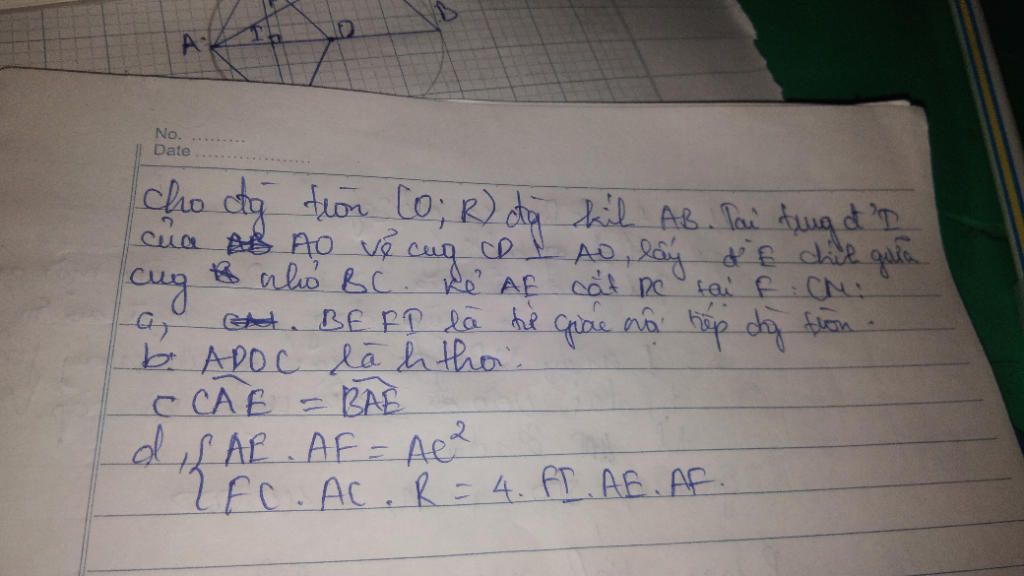 A
I
O
B
No. ..........
Date ....................
Cho đg tròn (O; R) đg kít AB. Tại tung đ' I
của AO vẽ cug CD ⊥ AO, lấy đ' E chít giữa
cug nhỏ BC. Kẻ AE cắt DC tại F. CM:
a, BEFI là tứ giác nội tiếp đg tròn.
b. ADOC là h thoi.
c CÂE = BÂE
d, { AE . AF = AC²
{ FC . AC . R = 4. FI . AE . AF.